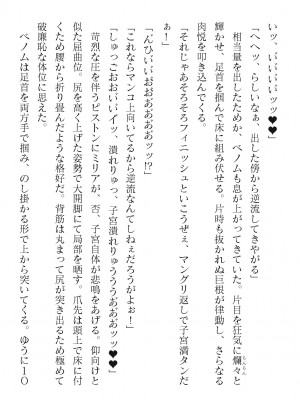 いッ、いいいいッッ♥♥」
「へへッ、らしいなぁ、出した傍から逆流してきやがる」
相当量を出したためか、ベノムも息が上がってきていた。片目を狂気に爛々と
輝かせ、足首を掴んで床に組み伏せる。片時も抜かれぬ巨根が律動し、さらなる
肉悦を叩き込んでくる。
「それじゃあそろそろフィニッシュといこうぜぇ、マングリ返しで子宮満タンだ
ぁ！」
「んひいいいおおおおおおッッ!?」
「これならマンコ上向いてるから逆流なんてしねぇだろうがよぉー！」
「しゅっこおおいいイッ、潰れりゅっ、子宮潰れりゅうううおおおッッ♥♥」
苛烈な圧を伴うピストンにミリアが、否、子宮自体が悲鳴をあげる。仰向けと
似た屈曲位。尻を高く上げた姿勢で大開脚にて局部を晒す。爪先は頭上で床に付
くため腰から折り畳んだような格好だ。背筋は丸まって尻が突き出るため極めて
破廉恥な体位に思えた。
ベノムは足首を両方手で掴み、のし掛かる形で上から突いてくる。ゆうに１０